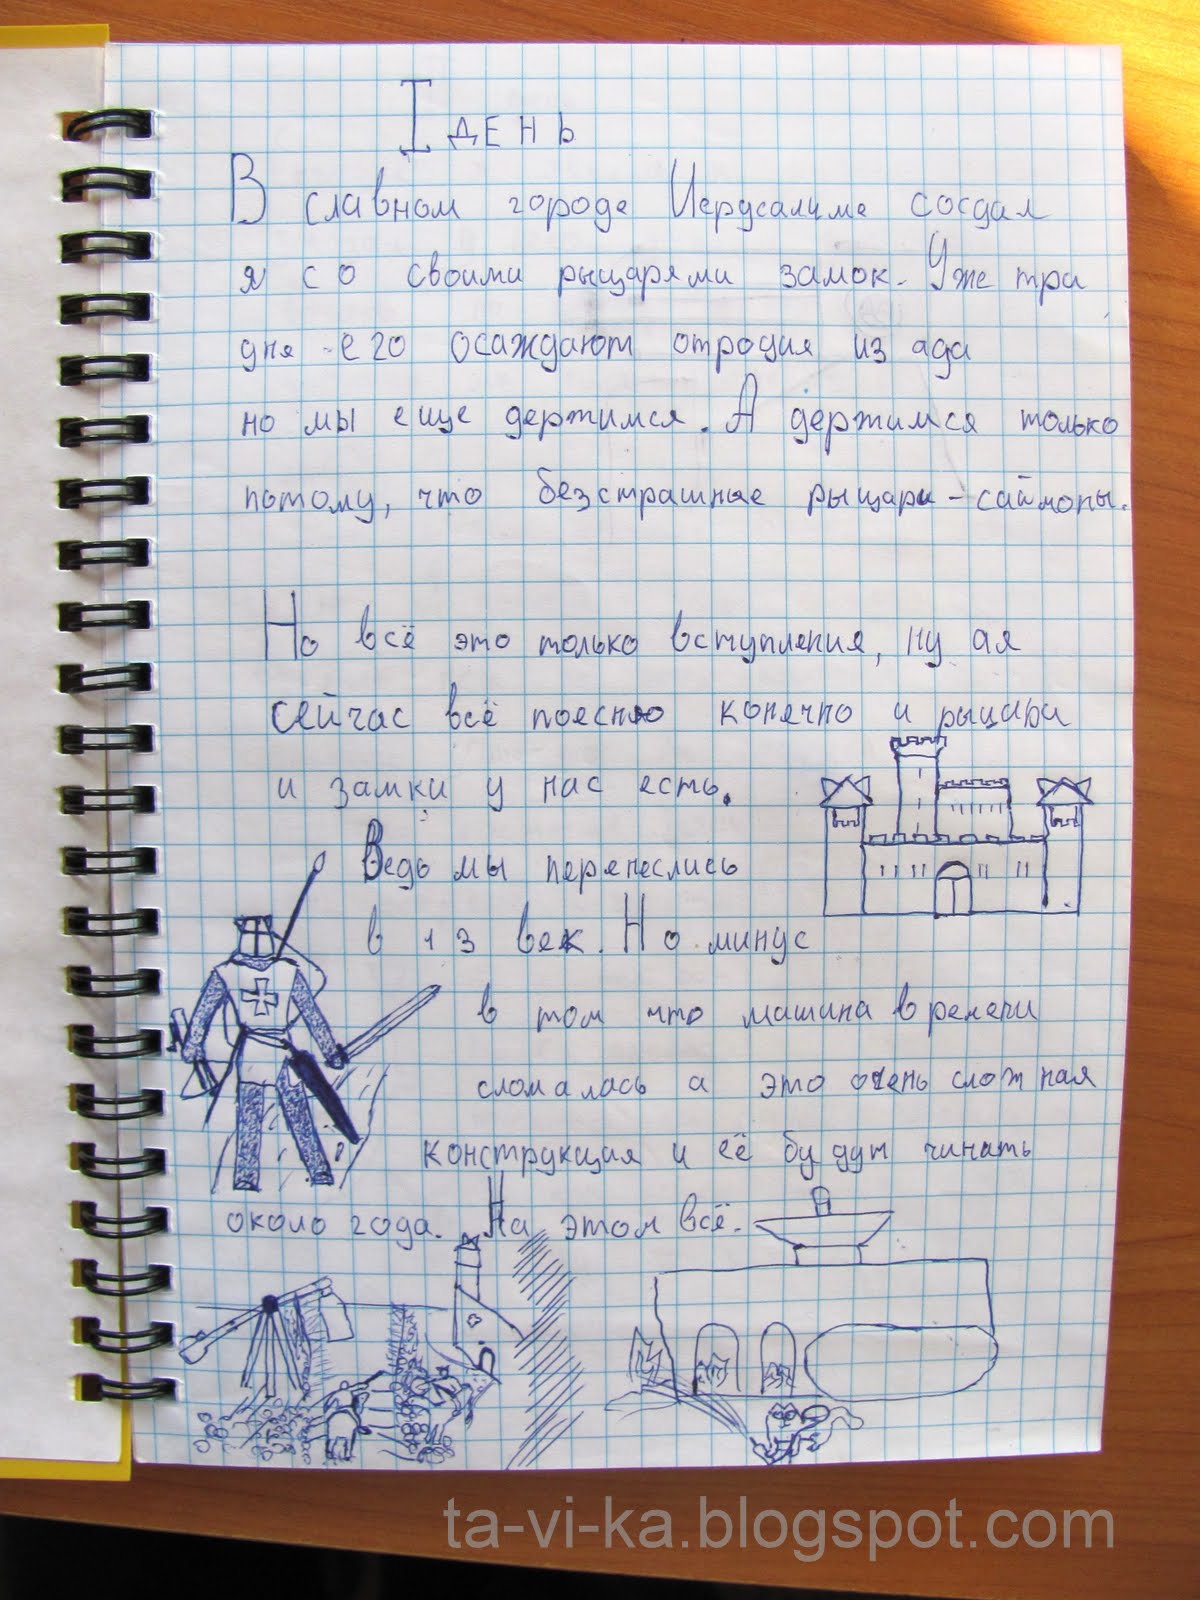 I день
В славном городе Иерусалиме сосдал
я со своими рыцарями замок. Уже три
дня его осаждают отродия из ада
но мы еще держимся. А держимся только
потому, что безстрашные рыцари - саймоны.
Но всё это только вступления, ну а я
сейчас всё поесняю конячно и рыцари
и замки у нас есть.
Ведь мы перенеслись
в 13 век. Но минус
в том что машина времени
сломалась а это очень сложная
конструкция и её будут чинать
около года. На этом всё.
ta-vi-ka.blogspot.com